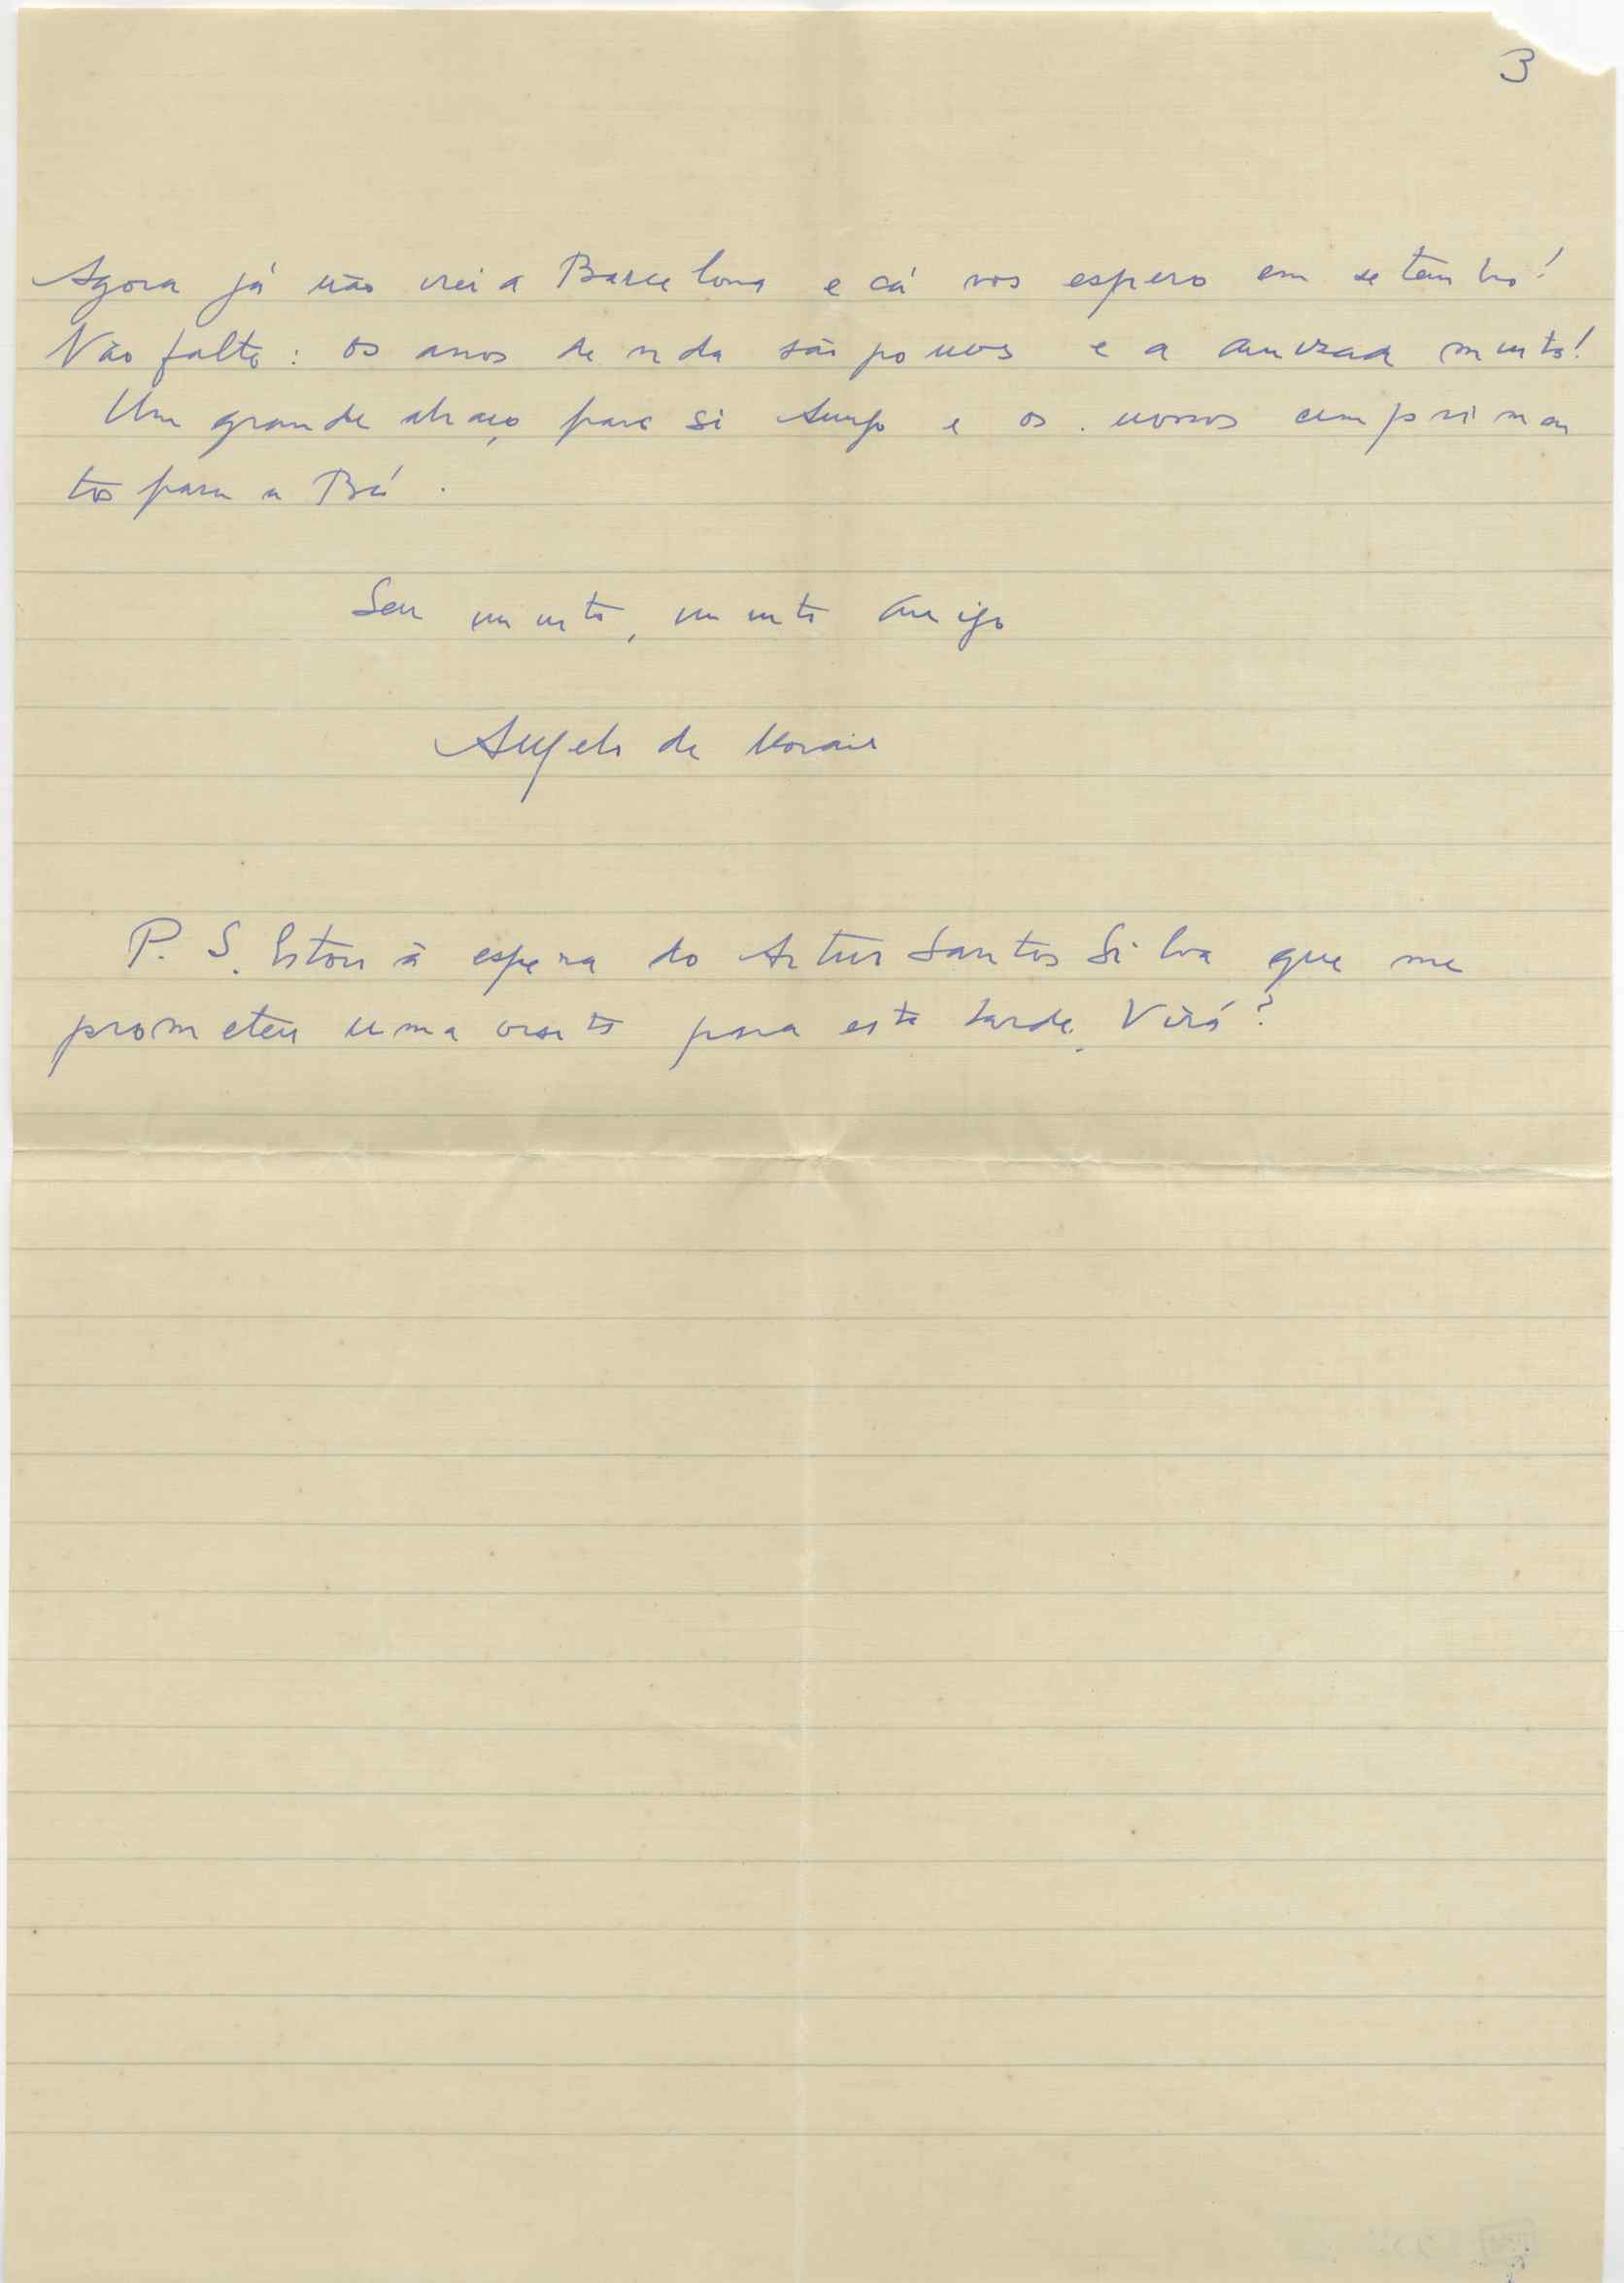 3
Agora já não irei a Barcelona e cá vos espero em setembro!
Não falte: os anos de vida são poucos e a amizade muita!
Um grande abraço para si Amigo e os nossos cumprimen
tos para a
Seu muito, muito amigo
Angelo de Morais
P. S. Estou à espera do Artur Santos Silva que me
prometeu uma visita para esta tarde. Virá?